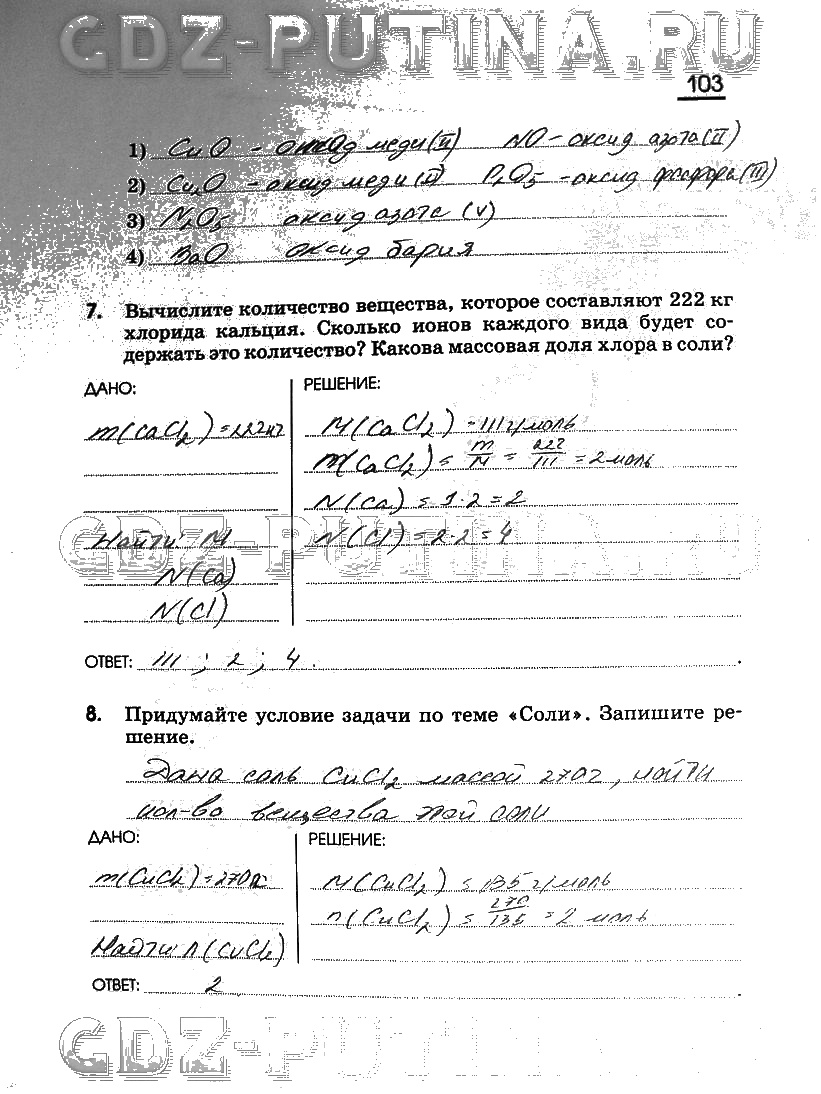 GDZ-PUTINA.RU
103
1) CuO - оксид меди (II) NO - оксид азота (II)
2) Cu₂O - оксид меди (II) P₂O5 - оксид фосфора (III)
3) N₂O5 оксид азота (V)
4) BaO оксид бария
7. Вычислите количество вещества, которое составляют 222 кг
хлорида кальция. Сколько ионов каждого вида будет со-
держать это количество? Какова массовая доля хлора в соли?
ДАНО: РЕШЕНИЕ:
m(CaCl₂) = 222кг M(CaCl₂) = 111 г/моль
m(CaCl₂) = m/M = 222/111 = 2 моль
N(Ca) = 1·2 = 2
GDZ-PUTINA.RU
Найти: M N(Cl) = 2·2 = 4
N(Ca)
N(Cl)
ОТВЕТ: 111 ; 2 ; 4 .
8. Придумайте условие задачи по теме «Соли». Запишите ре-
шение.
Дана соль CuCl₂ массой 270г, найти
кол-во вещества этой соли
ДАНО: РЕШЕНИЕ:
m(CuCl₂) = 270г M(CuCl₂) = 135 г/моль
n(CuCl₂) = 270/135 = 2 моль
Найти n(CuCl₂)
ОТВЕТ: 2
GDZ-PUTINA.RU